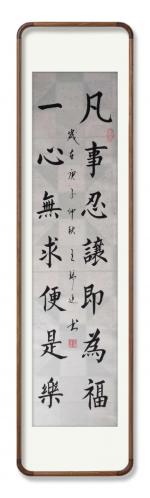 凡事忍讓即為福
一心無求便是樂
歲在庚子仲秋